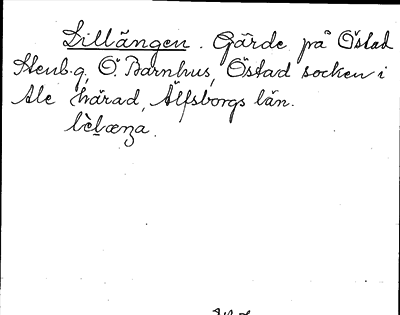 Lillängen. Gärde på Östad
Stenb.g, Ö. Barnhus, Östad socken i
Ale härad, Älfsborgs län.